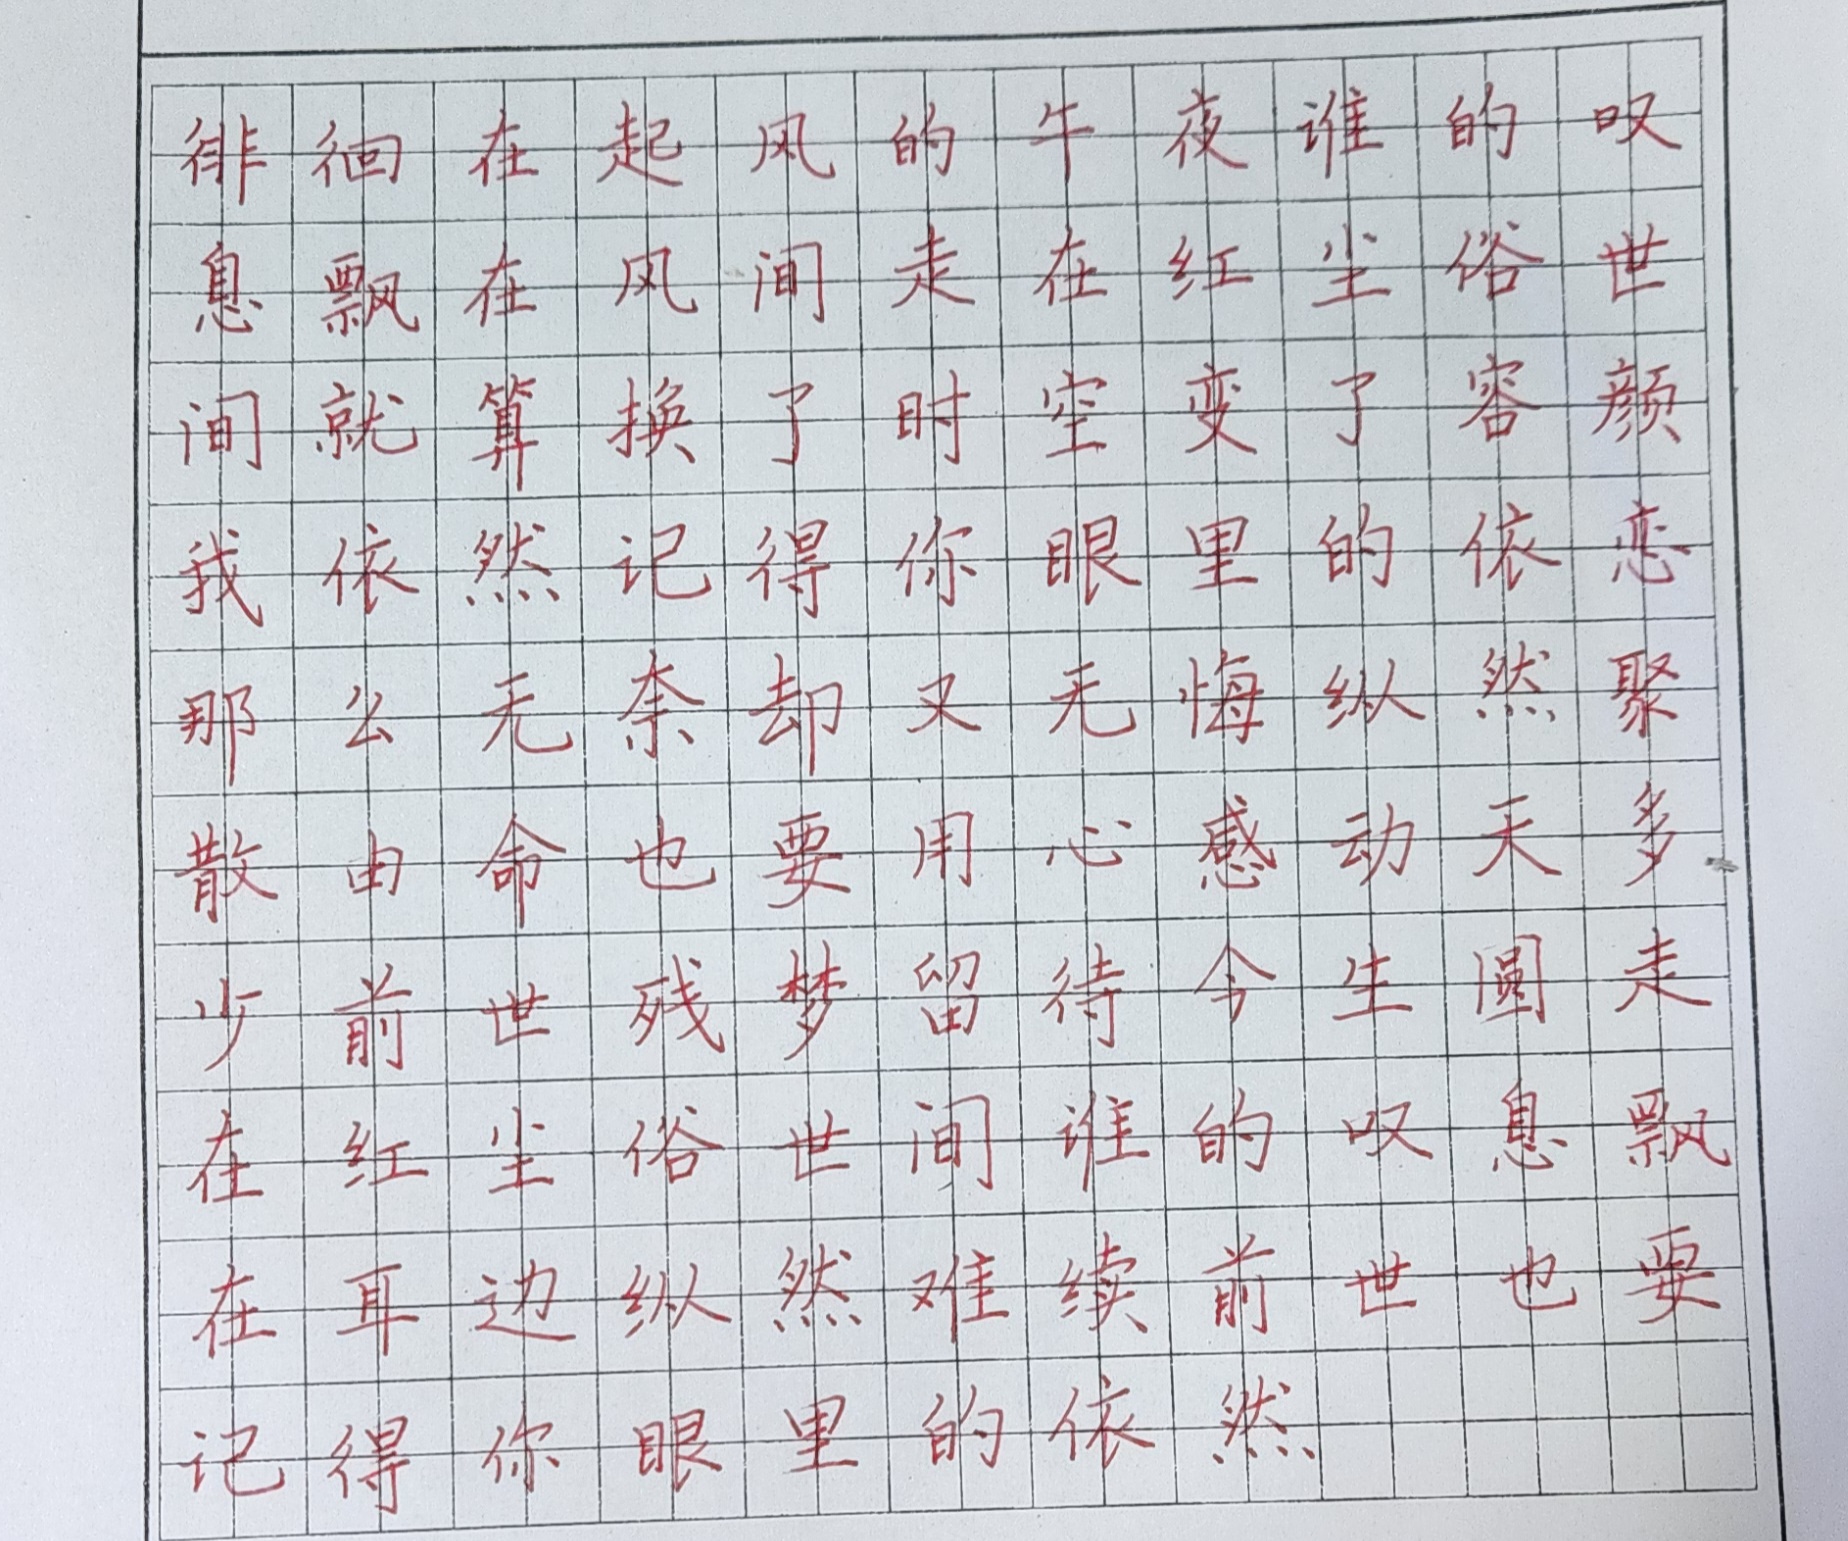 徘徊在起风的午夜谁的叹
息飘在风间走在红尘俗世
间就算换了时空变了容颜
我依然记得你眼里的依恋
那么无奈却又无悔纵然聚
散由命也要用心感动天多
少前世残梦留待今生圆走
在红尘俗世间谁的叹息飘
在耳边纵然难续前世也要
记得你眼里的依然